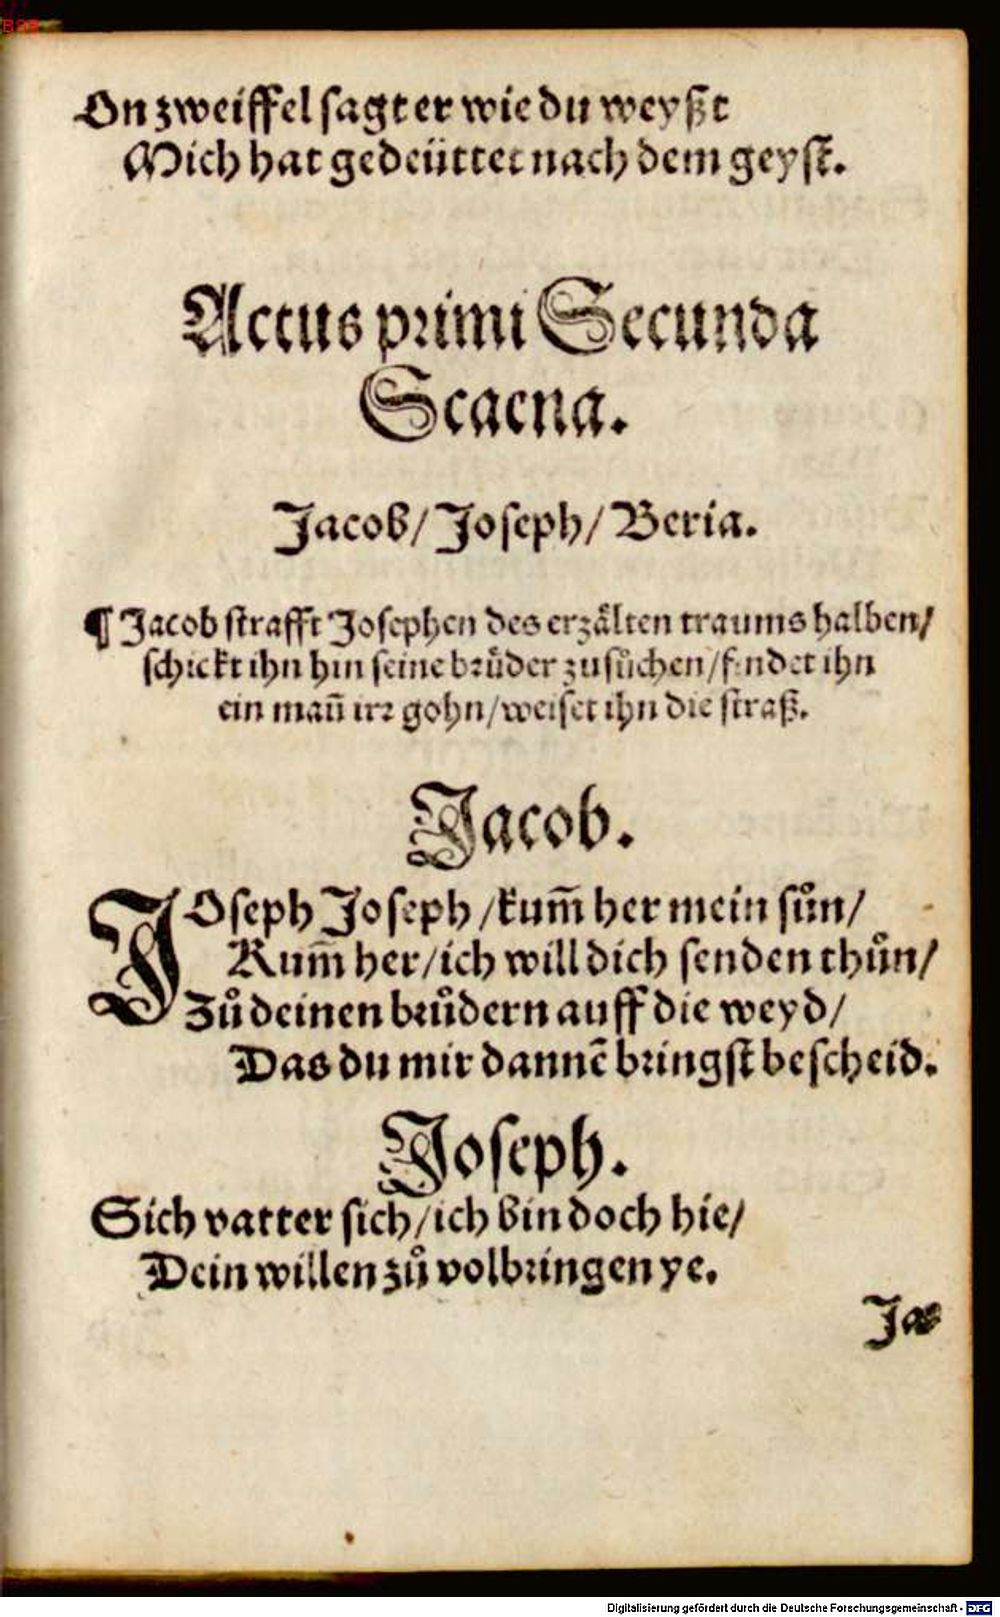 BSB
On zweiffel sagt er wie du weyßt
Mich hat gedeüttet nach dem geyst.
Actus primi Secunda
Scaena.
Jacob/ Joseph/ Beria.
¶ Jacob strafft Josephen des erzålten traums halben/
schickt ihn hin seine brůder zusůchen/ findet ihn
ein mañ irr gohn/ weiset ihn die straß.
Jacob.
JOseph Joseph / kum̃ her mein sůn/
Kum̃ her/ ich will dich senden thůn/
Zů deinen brůdern auff die weyd/
Das du mir dannẽ bringst bescheid.
Joseph.
Sich vatter sich/ ich bin doch hie/
Dein willen zů volbringen ye.
Ja⸗
Digitalisierung gefördert durch die Deutsche Forschungsgemeinschaft - DFG